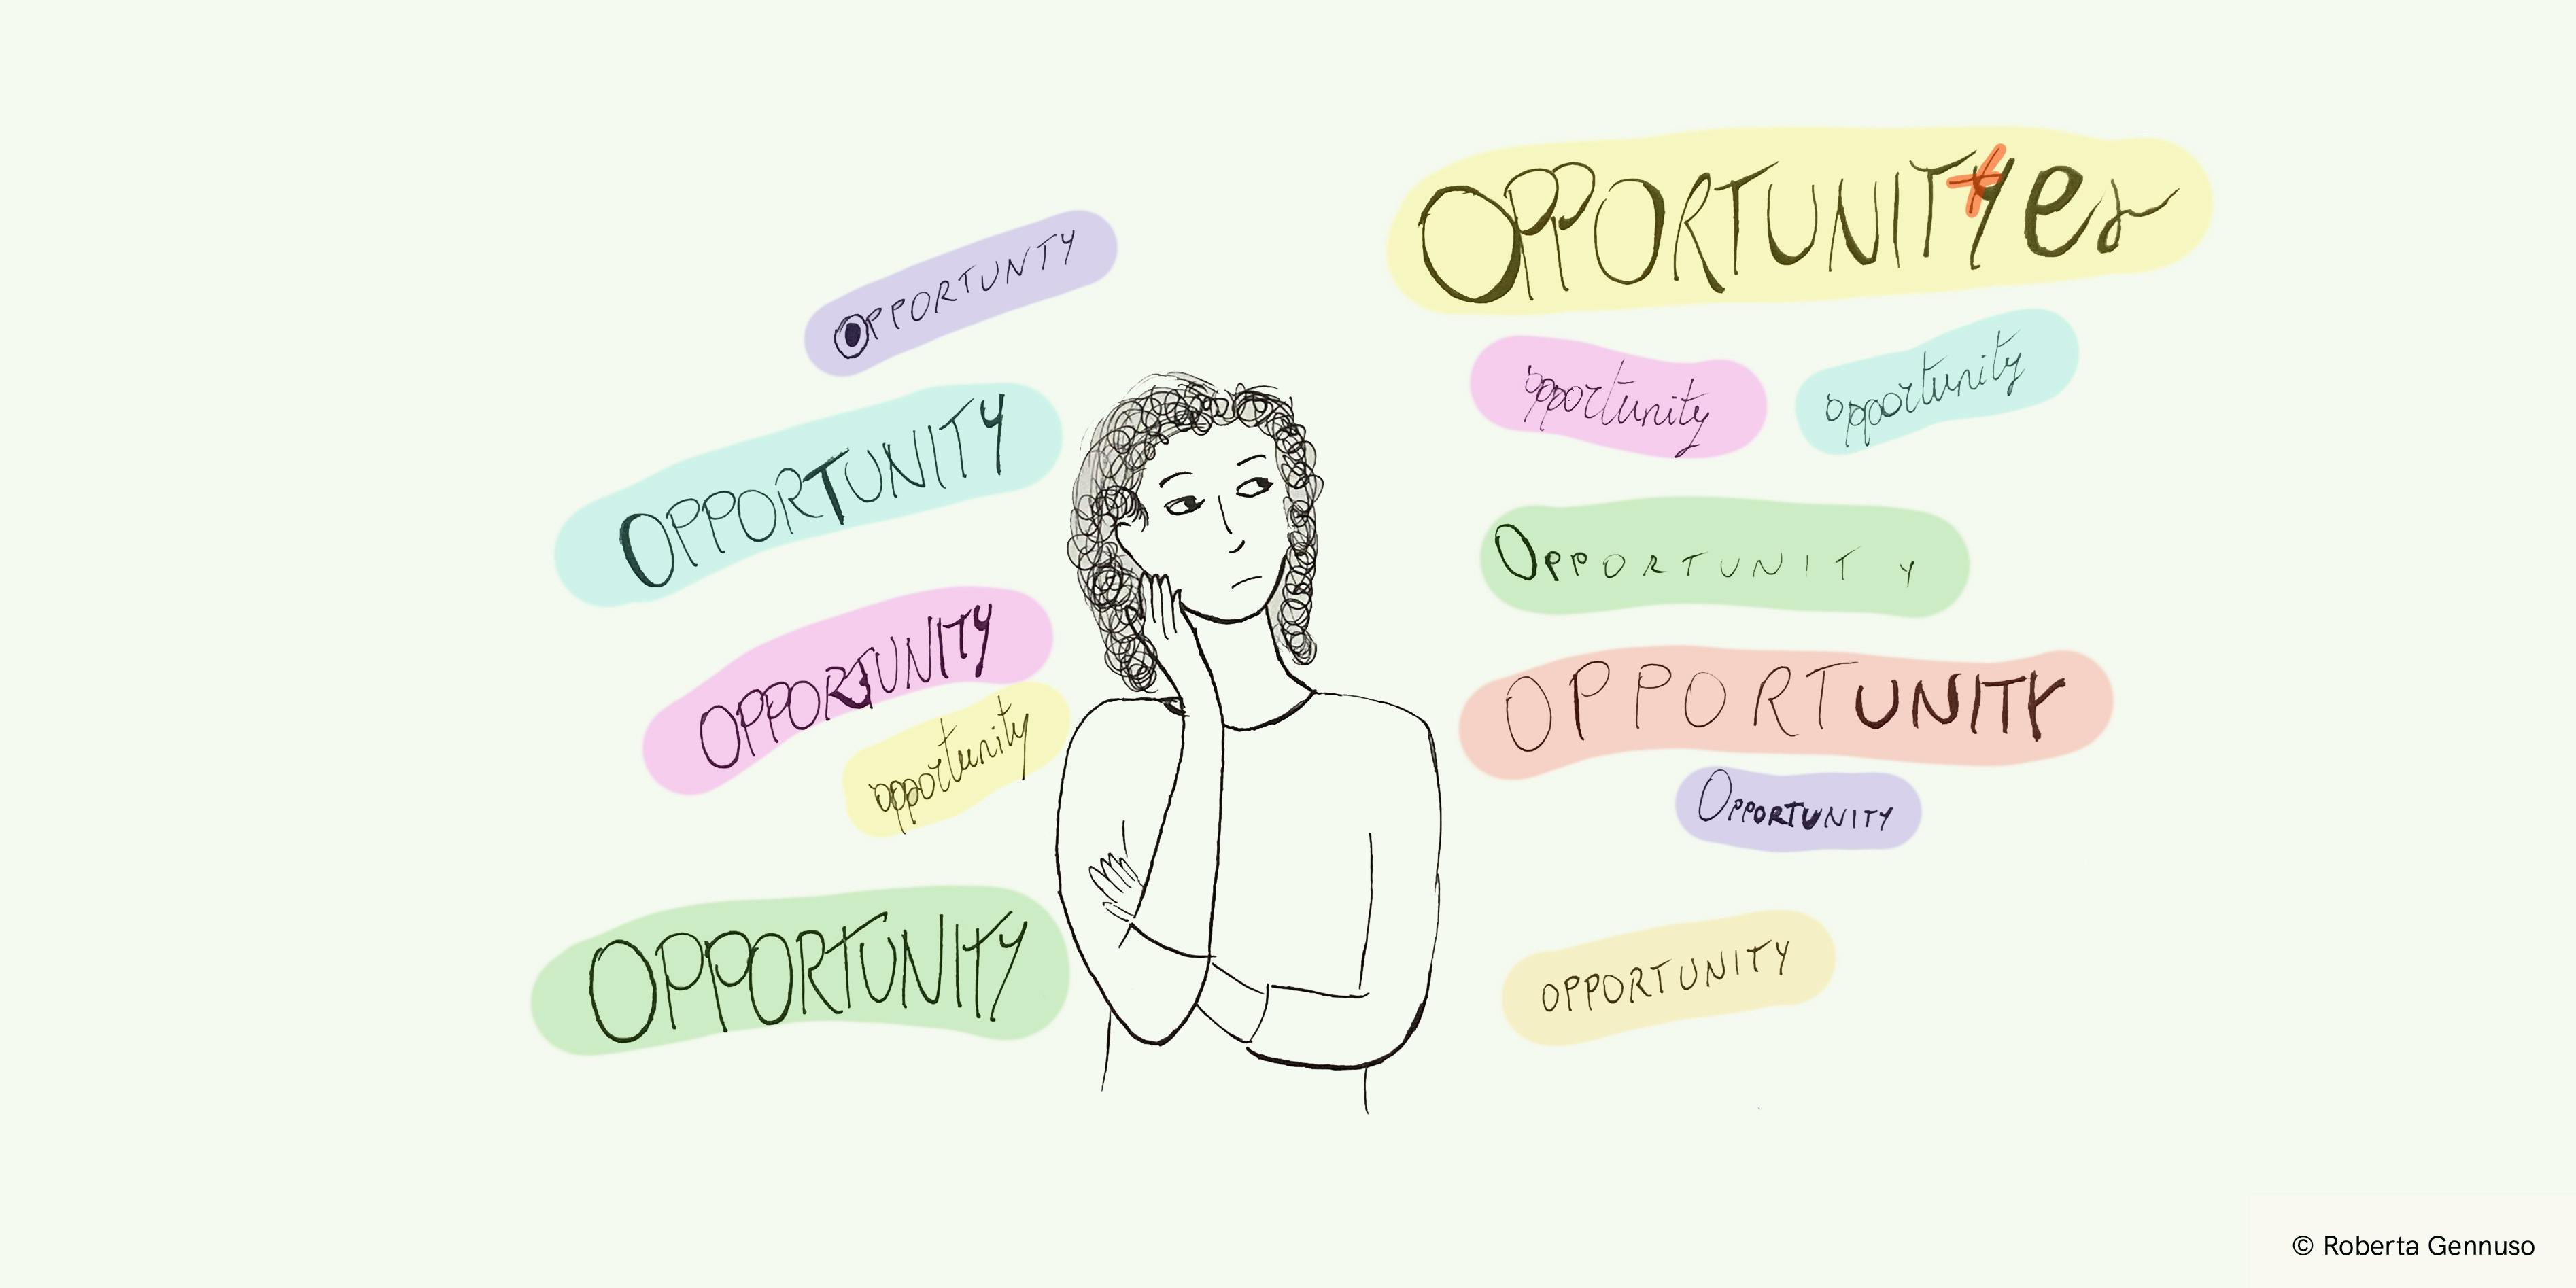 OPPORTUNTY
OPPORTUNITY
OPPORTUNITY
opportunity
OPPORTUNITY
OPPORTUNITYes
opportunity
opportunity
OPPORTUNITY
OPPORTUNITY
OPPORTUNITY
OPPORTUNITY
© Roberta Gennuso